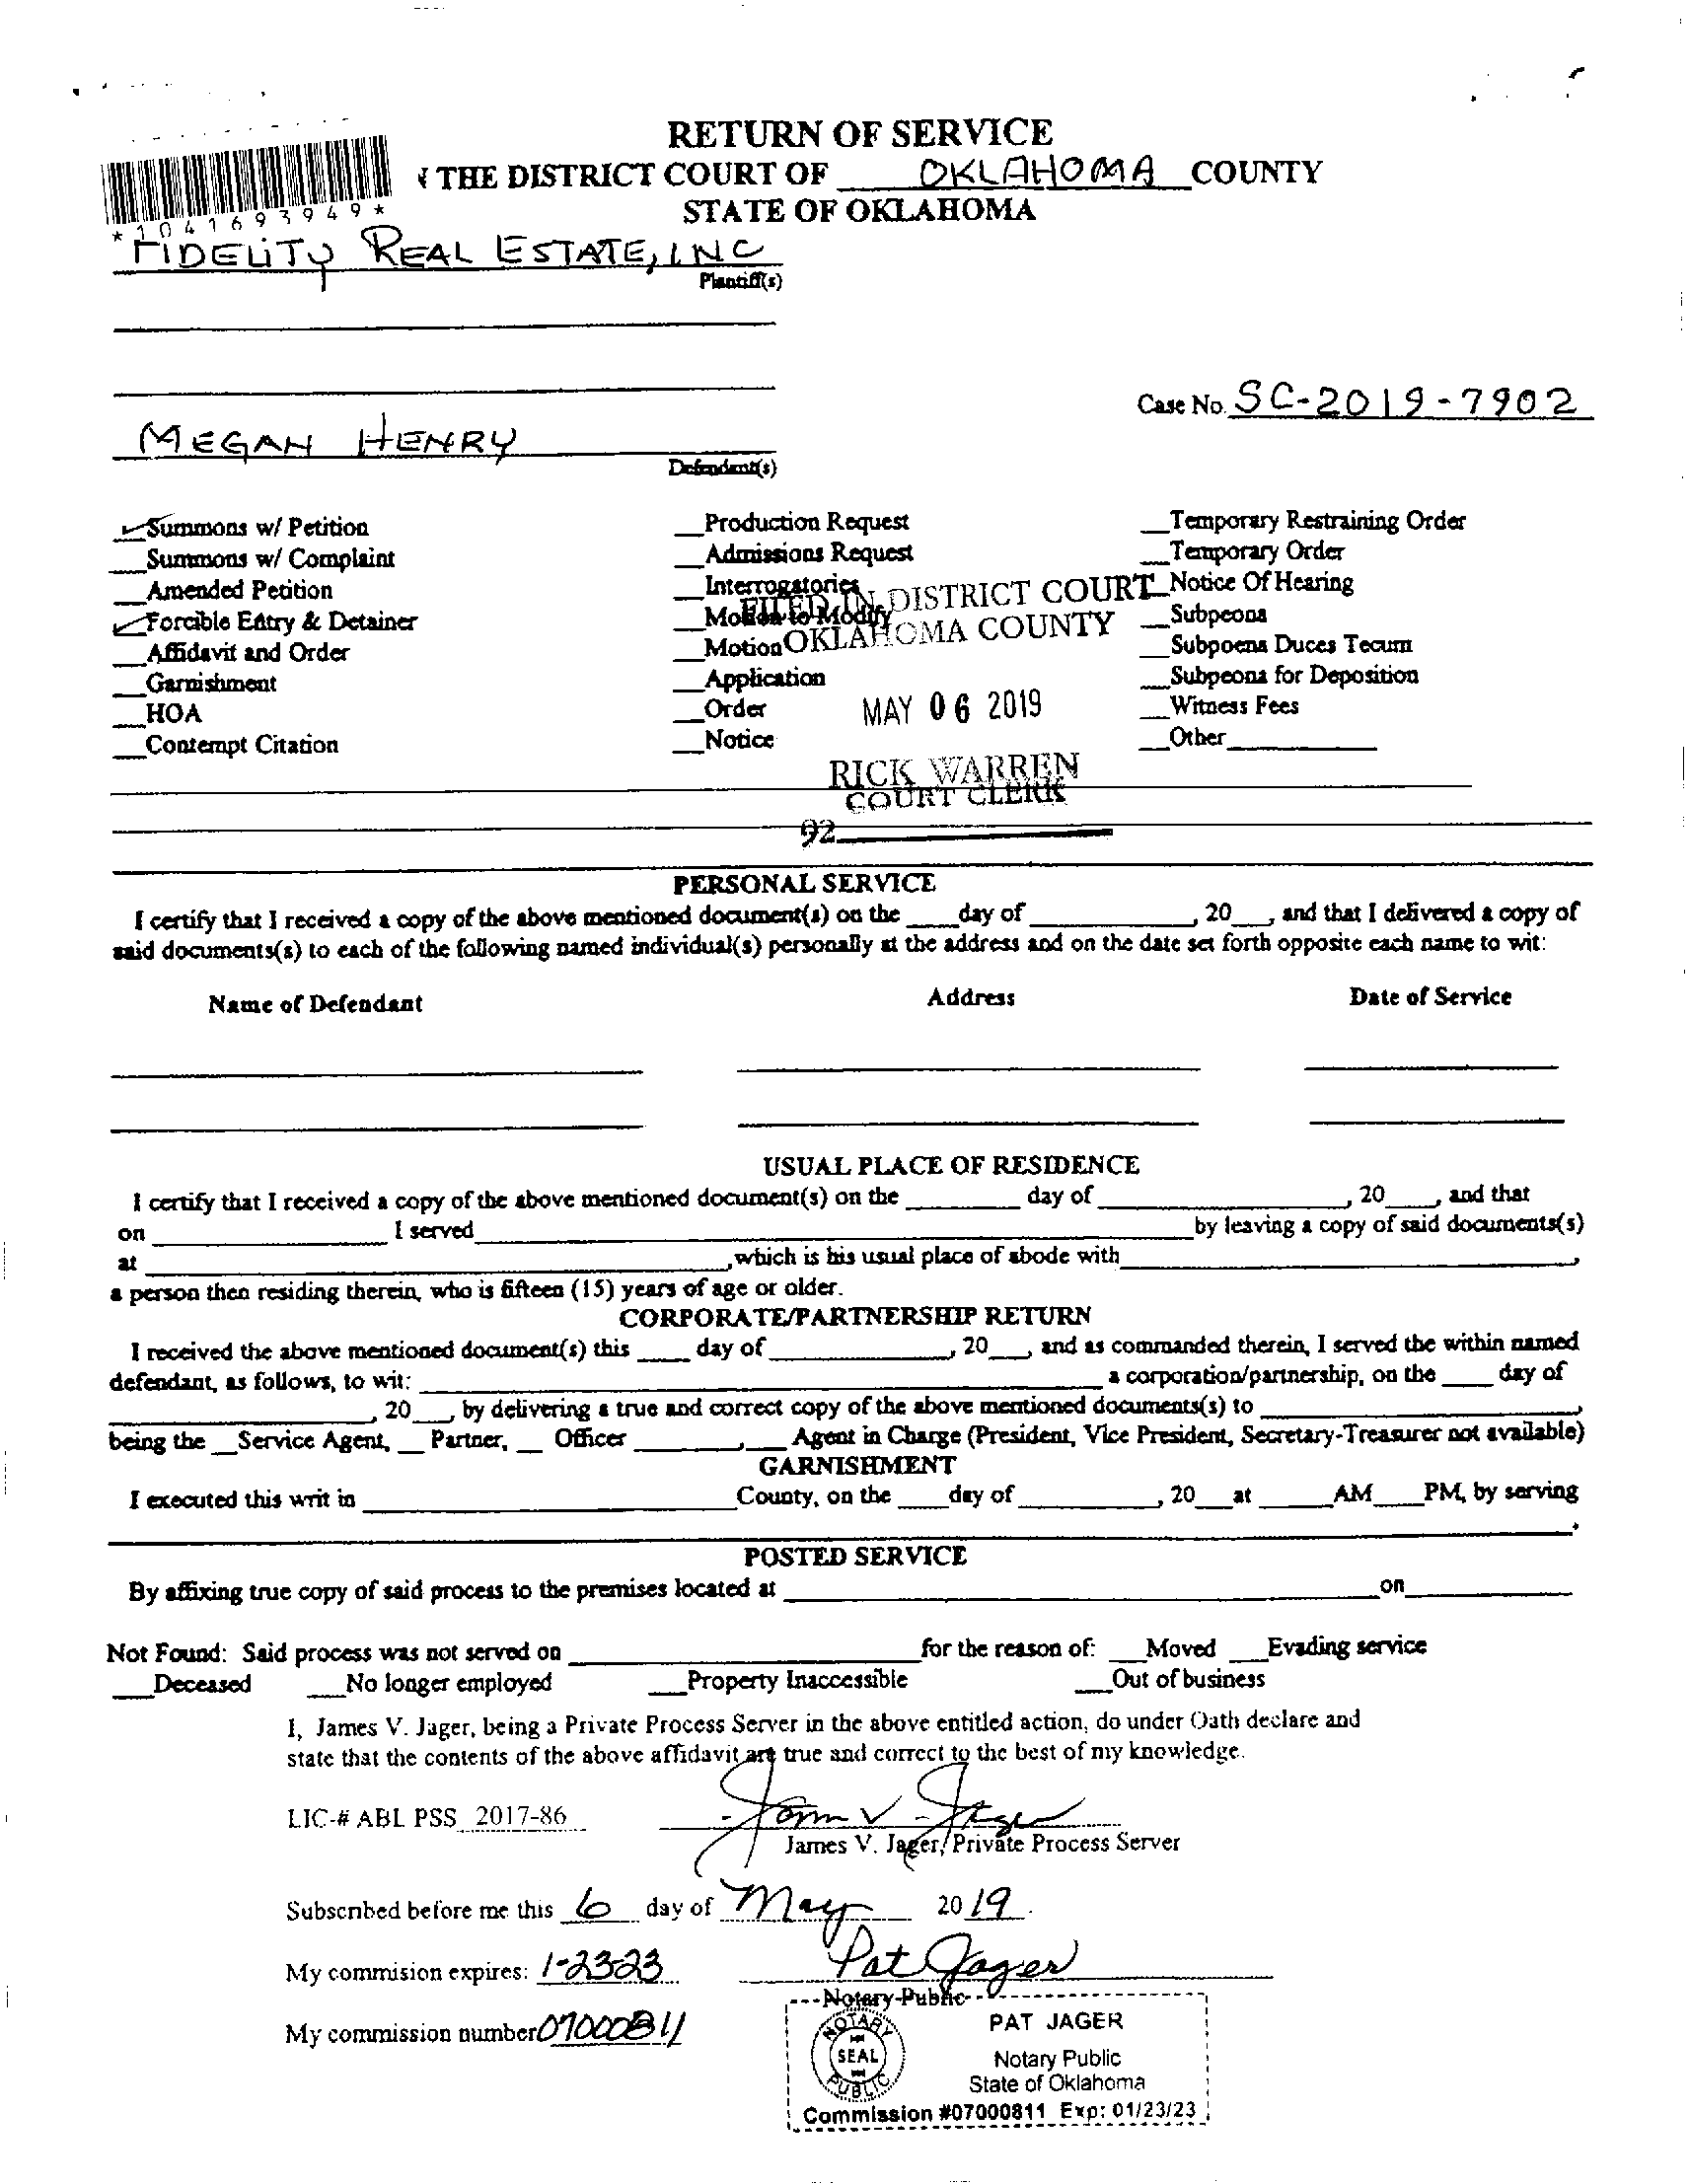 RETURN OF SERVICE
THE DISTRICT COURT OF OKLAHOMA COUNTY
STATE OF OKLAHOMA
*1041693949*
FIDELITY REAL ESTATE, INC
Plantiff(s)
Case No. SC-2019-7902
MEGAN HENRY
Defendant(s)
✓Summons w/ Petition __Production Request __Temporary Restraining Order
__Summons w/ Complaint __Admissions Request __Temporary Order
__Amended Petition __Interrogatories __Notice Of Hearing
✓Forcible Entry & Detainer __Motion to Modify __Subpeona
__Affidavit and Order __Motion __Subpoena Duces Tecum
__Garnishment __Application __Subpeona for Deposition
__HOA __Order __Witness Fees
__Contempt Citation __Notice __Other
FILED IN DISTRICT COURT
OKLAHOMA COUNTY
MAY 06 2019
RICK WARREN
COURT CLERK
92
PERSONAL SERVICE
I certify that I received a copy of the above mentioned document(s) on the ____day of ____________, 20___, and that I delivered a copy of
said documents(s) to each of the following named individual(s) personally at the address and on the date set forth opposite each name to wit:
Name of Defendant Address Date of Service
USUAL PLACE OF RESIDENCE
I certify that I received a copy of the above mentioned document(s) on the ________ day of ____________, 20____, and that
on ____________ I served ____________ by leaving a copy of said documents(s)
at ____________, which is his usual place of abode with ____________,
a person then residing therein, who is fifteen (15) years of age or older.
CORPORATE/PARTNERSHIP RETURN
I received the above mentioned document(s) this ____ day of ____________, 20___, and as commanded therein, I served the within named
defendant, as follows, to wit: ____________ a corporation/partnership, on the ____ day of
____________, 20___, by delivering a true and correct copy of the above mentioned documents(s) to ____________,
being the __Service Agent, __ Partner, __ Officer ________,___ Agent in Charge (President, Vice President, Secretary-Treasurer not available)
GARNISHMENT
I executed this writ in ____________County, on the ____day of ____________, 20___at _____AM____PM, by serving
____________.
POSTED SERVICE
By affixing true copy of said process to the premises located at ____________on____________
Not Found: Said process was not served on ____________for the reason of: ___Moved ___Evading service
___Deceased ___No longer employed ___Property Inaccessible ___Out of business
I, James V. Jager, being a Private Process Server in the above entitled action, do under Oath declare and
state that the contents of the above affidavit are true and correct to the best of my knowledge.
LIC-# ABL PSS 2017-86
James V. Jager
James V. Jager, Private Process Server
Subscribed before me this 6 day of May 2019.
My commision expires: 1-23-23 Pat Jager
Notary Public
My commission number 07000811
NOTARY
SEAL
PUBLIC
PAT JAGER
Notary Public
State of Oklahoma
Commission #07000811 Exp: 01/23/23